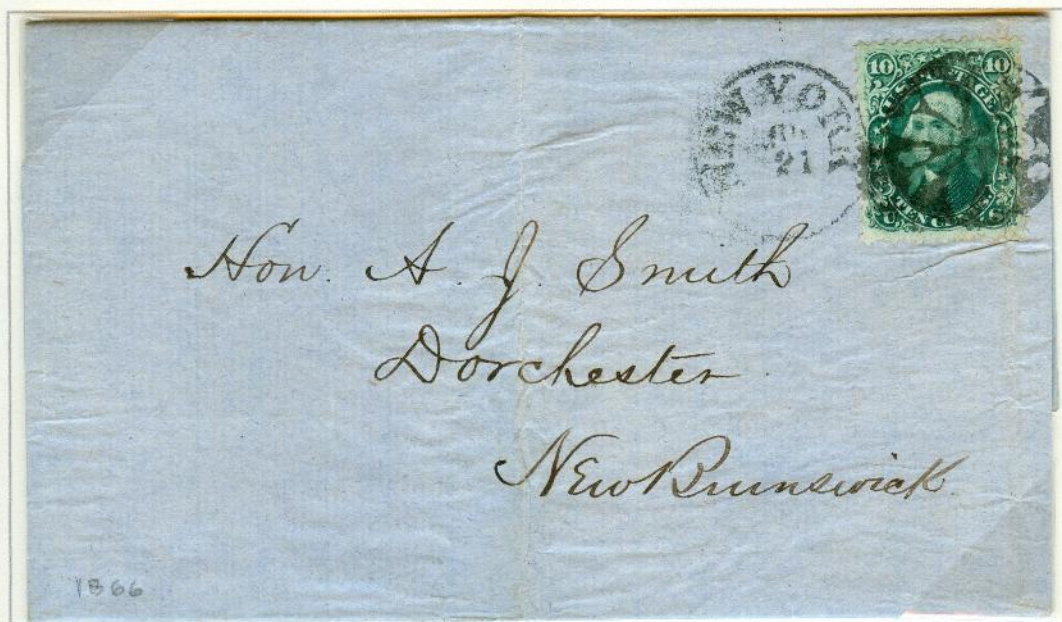 NEW YORK
21
10 10
U.S. POSTAGE
TEN CENTS
U S
Hon. A. J. Smith
Dorchester
New Brunswick.
1866